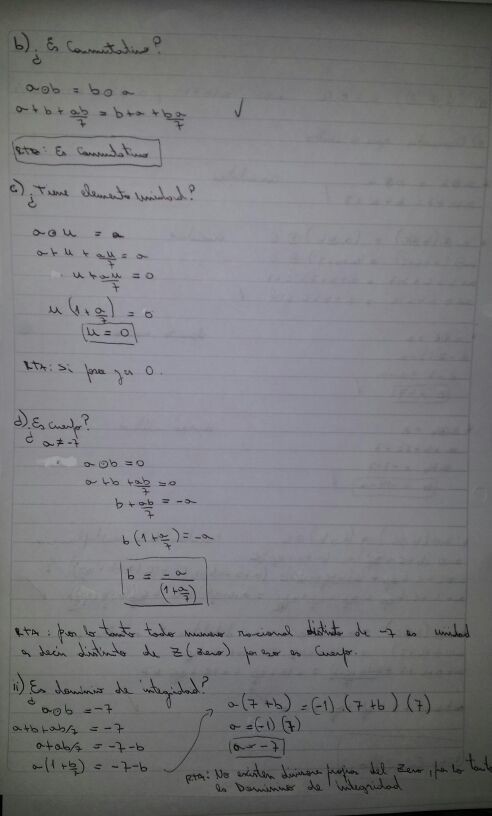 b) ¿Es Conmutativo?
a⊙b = b⊙a
a+b+ab/7 = b+a+ba/7 ✓
RTA: Es Conmutativo
c) ¿Tiene elemento unidad?
a⊙u = a
a+u+au/7 = a
u+au/7 = 0
u(1+a/7) = 0
u = 0
RTA: Si posee y es 0.
d) ¿Es cuerpo?
a ≠ -7
a⊙b = 0
a+b+ab/7 = 0
b+ab/7 = -a
b(1+a/7) = -a
b = -a/(1+a/7)
RTA: por lo tanto todo numero racional distinto de -7 es unidad
es decir distinto de Z (zero) por eso es Cuerpo.
ii) ¿Es dominio de integridad?
a⊙b = -7
a+b+ab/7 = -7
a+ab/7 = -7-b
a(1+b/7) = -7-b
a(7+b) = (-1).(7+b)(7)
a = (-1)(7)
a = -7
RTA: No existen divisores propios del zero, por lo tanto
es Dominio de integridad